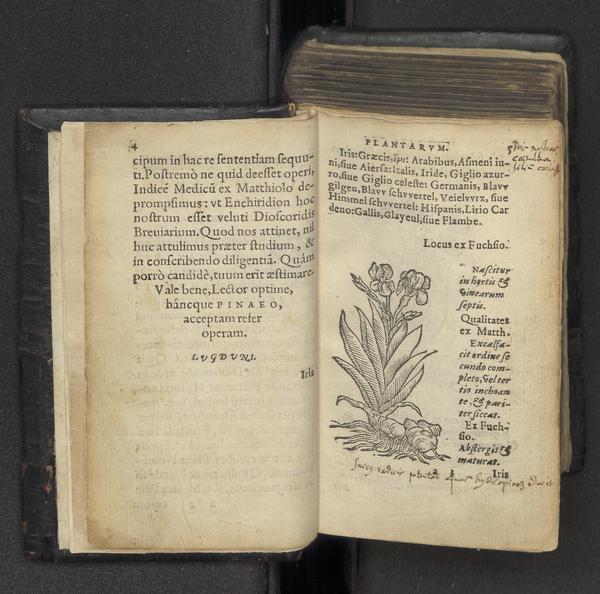 4
cipum in hac re sententiam sequu-
ti. Postremò ne quid deesset operi,
Indicẽ Medicũ ex Matthiolo de-
prompsimus: vt Enchiridion hoc
nostrum esset veluti Dioscoridis
Breuiarium. Quod nos attinet, nil
huc attulimus præter studium, &
in conscribendo diligentiã. Quàm
porrò candidè, tuum erit æstimare.
Vale bene, Lector optime,
hâncque PINAEO,
acceptam refer
operam.
LVGDVNI.
Iris
PLANTARVM.
Iris: Græcis, ἶρις: Arabibus, Asmeni iu-
ni, siue Aiersa: Italis, Iride, Giglio azur-
ro, siue Giglio celeste: Germanis, Blavv
gilgen, Blavv schvvertel, Veielvvrz, siue
Himmel schvvertel: Hispanis, Lirio Car
deno: Gallis, Glayeul, siue Flambe.
Locus ex Fuchsio.
Nascitur
in hortis &
vinearum
septis.
Qualitates
ex Matth.
Excalfa-
cit ordine se
cundo com-
pleto, vel ter
tio inchoan
te, & pari-
ter siccat.
Ex Fuch-
sio.
Abstergit &
maturat.
Iris
succus radicis potenter aquas hydropicas educit